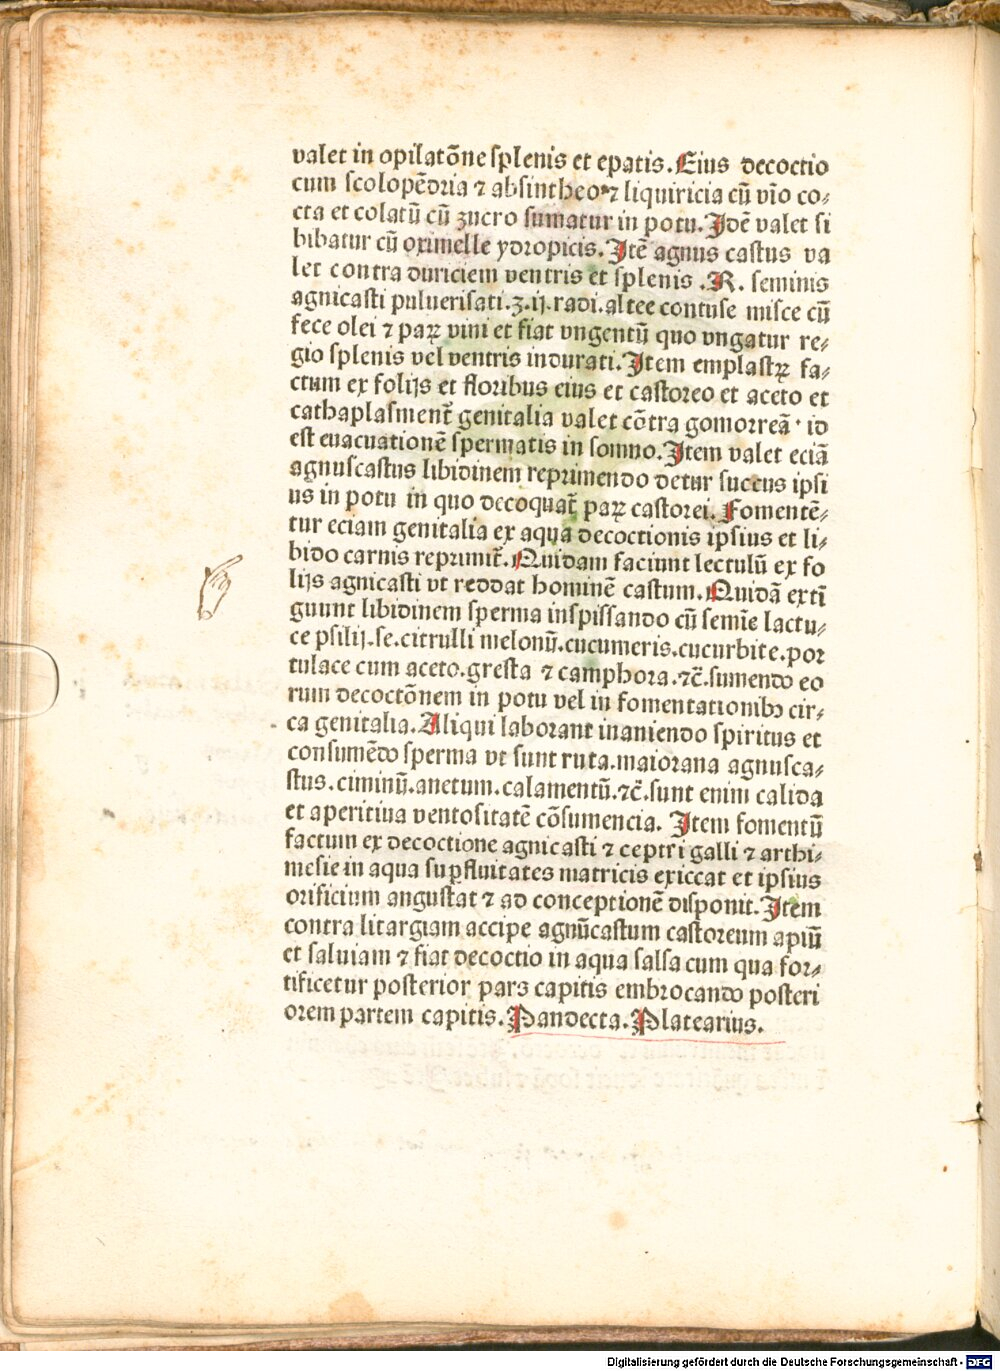 valet in opilatōne splenis et epatis. Eius decoctio
cum scolopēdria ⁊ absintheo ⁊ liquiricia cū vīo co⸗
cta et colatū cū zucro sumatur in potu. Idē valet si
bibatur cū oximelle ydropicis. Itē agnus castus va
let contra duriciem ventris et splenis .R. seminis
agnicasti puluerisati.ʒ.ij.radi.altee contuse misce cū
fece olei ⁊ paꝝ vini et fiat vngentū quo vngatur re⸗
gio splenis vel ventris indurati. Item emplastꝝ fa⸗
ctum ex folijs et floribus eius et castoreo et aceto et
cathaplasment̄ genitalia valet cōtra gomorreā · id
est euacuationē spermatis in somno. Item valet eciā
agnuscastus libidinem reprimendo detur succus ipsi
us in potu in quo decoquat̄ paꝝ castorei. Fomentē⸗
tur eciam genitalia ex aqua decoctionis ipsius et li⸗
bido carnis reprimit̄. Quidam faciunt lectulū ex fo
lijs agnicasti vt reddat hominē castum. Quidā extī
guunt libidinem sperma inspissando cū semīe lactu⸗
ce psilij.se.citrulli melonū.cucumeris.cucurbite.por
tulace cum aceto.gresta ⁊ camphora.⁊c̄.sumendo eo
rum decoctōnem in potu vel in fomentationibꝫ cir⸗
ca genitalia. Aliqui laborant inaniendo spiritus et
consumēdo sperma vt sunt ruta.maiorana agnusca⸗
stus.ciminū.anetum.calamentū.⁊c̄.sunt enim calida
et aperitiua ventositatē cōsumencia. Item fomentū
factum ex decoctione agnicasti ⁊ ceptri galli ⁊ arthi⸗
mesie in aqua suꝑfluitates matricis exiccat et ipsius
orificium angustat ⁊ ad conceptionē disponit. Item
contra litargiam accipe agnūcastum castoreum apiū
et saluiam ⁊ fiat decoctio in aqua salsa cum qua for⸗
tificetur posterior pars capitis embrocando posteri
orem partem capitis. Pandecta. Platearius.
Digitalisierung gefördert durch die Deutsche Forschungsgemeinschaft - DFG